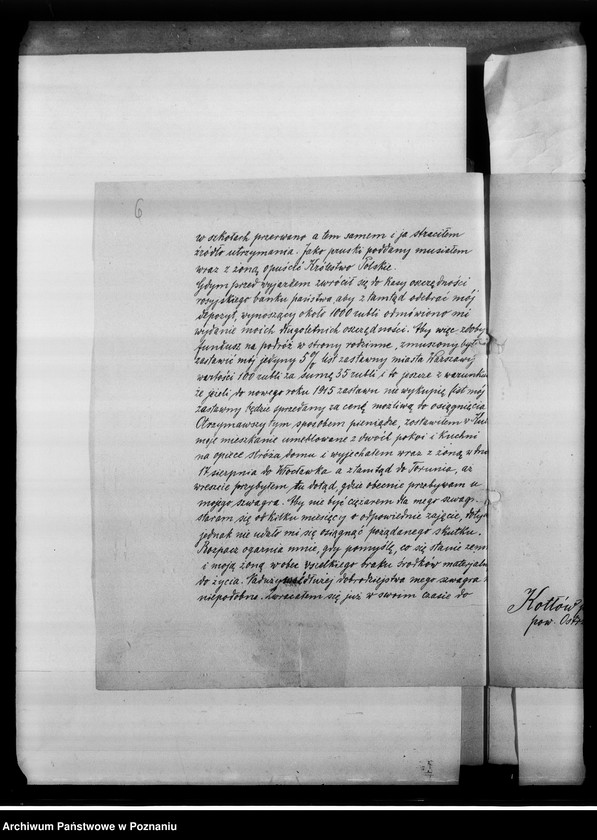 6
w szkołach przerwano a tem samem i ja straciłem
źródło utrzymania. Jako pruski poddany musiałem
wraz z żoną opuścić Królestwo Polskie.
Gdym przed wyjazdem zwrócił się do kasy oszczędności
rosyjskiego banku państwa, aby z tamtąd odebrać mój
depozyt, wynoszący około 1000 rubli odmówiono mi
wydanie moich długoletnich oszczędności. Aby więc zdoby
fundusz na podróż w strony rodzinne, zmuszony był
zastawić mój jedyny 5% list zastawny miasta Warszawy
wartości 100 rubli za sumę 35 rubli i to jeszcze z warunkiem
że jeżeli do nowego roku 1915 zastawu nie wykupię list mój
zastawny będzie sprzedany za cenę możliwą do osiągnięcia
Otrzymawszy tym sposobem pieniądze, zostawiłem w
moje mieszkanie umeblowane z dwóch pokoi i kuchni
na opiece stróża domu i wyjechałem wraz z żoną w dniu
17 sierpnia do Włocławka a z tamtąd do Torunia, aż
wreszcie przybyłem tu dotąd, gdzie obecnie przebywam u
mojego szwagra. Aby nie być ciężarem dla mego szwagr
staram się od kilku miesięcy o odpowiednie zajęcie, dotych
jednak nie udało mi się osiągnąć pożądanego skutku.
Rozpacz ogarnia mnie, gdy pomyślę, co się stanie ze mn
i moją żoną wobec wszelkiego braku środków materyaln
do życia. Nadużywać dłużej dobrodziejstwa mego szwagra
niepodobna. Zwracałem się już w swoim czasie do
Kotłów
pow. Ostrz
Archiwum Państwowe w Poznaniu